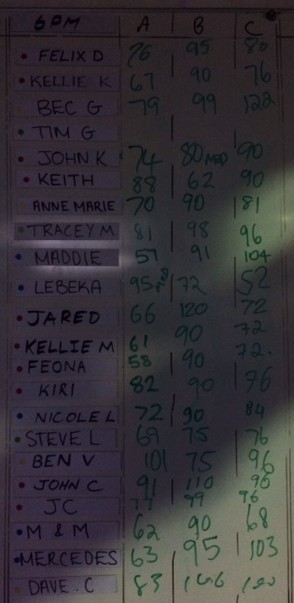 6PM A B C
FELIX D 76 95 80
KELLIE K 67 90 76
BEC G 79 99 122
TIM G
JOHN K 74 80 MOD 90
KEITH 88 62 90
ANNE MARIE 70 90 81
TRACEY M 81 98 96
MADDIE 57 91 104
LEBEKA 95 72 52
JARED 66 120 72
KELLIE M 61 90 72
FEONA 58 90 72.
KIRI 82 90 76
NICOLE L 72 90 84
STEVE L 69 75 76
BEN V 101 75 96
JOHN C 91 110 96
JC 77 99 76
M & M 62 90 68
MERCEDES 63 95 103
DAVE. C 83